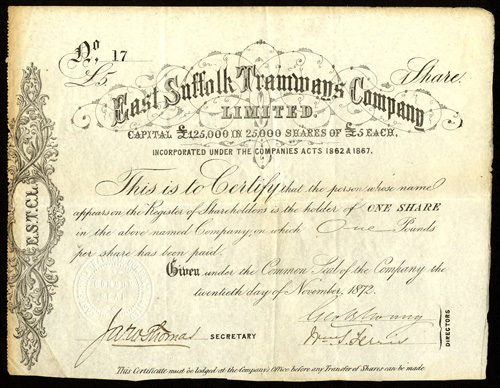 No. 17
£5. Share.
East Suffolk Tramways Company
LIMITED.
CAPITAL £125,000 IN 25000 SHARES OF £5 EACH,
INCORPORATED UNDER THE COMPANIES ACTS 1862 & 1867.
This is to Certify that the person whose name
appears on the Register of Shareholders is the holder of ONE SHARE
in the above named Company, on which One Pounds
per share has been paid.
Given under the Common Seal of the Company the
twentieth day of November, 1872.
Jas W Thomas SECRETARY
DIRECTORS
E.S.T.C.L.
This Certificate must be lodged at the Company's Office before any Transfer of Shares can be made